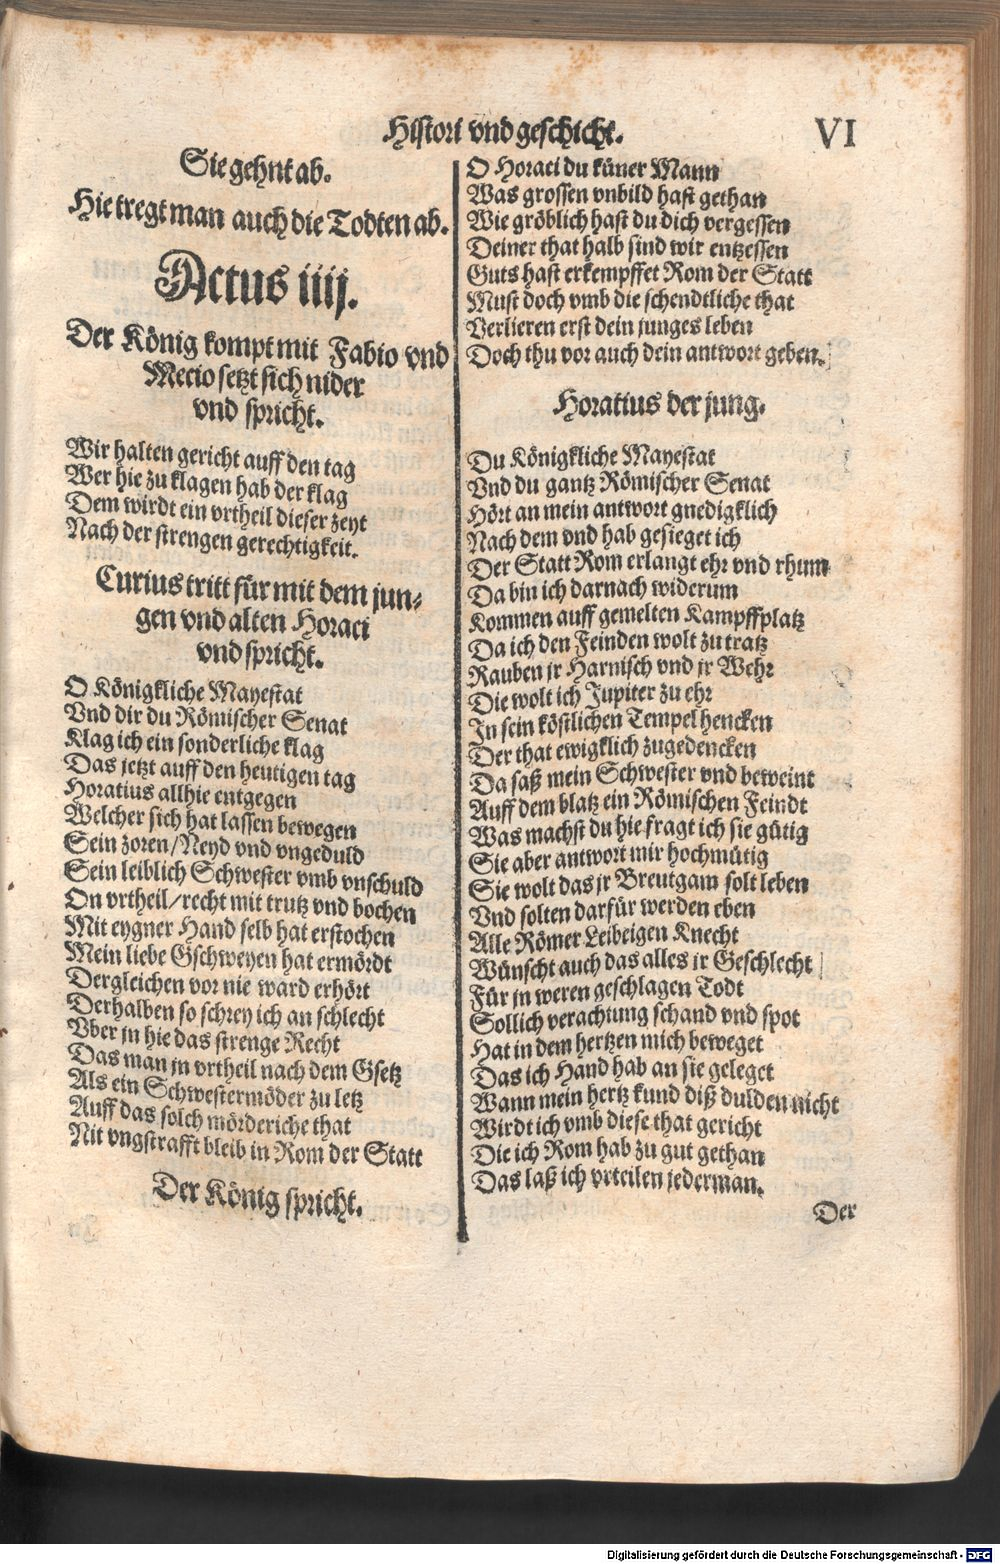 Histori vnd geschicht.
VI
Sie gehnt ab.
Hie tregt man auch die Todten ab.
Actus iiij.
Der König kompt mit Fabio vnd
Mecio setzt sich nider
vnd spricht.
Wir halten gericht auff den tag
Wer hie zu klagen hab der klag
Dem wirdt ein vrtheil dieser zeyt
Nach der strengen gerechtigkeit.
Curius tritt für mit dem jun-
gen vnd alten Horaci
vnd spricht.
O Königkliche Mayestat
Vnd dir du Römischer Senat
Klag ich ein sonderliche klag
Das jetzt auff den heutigen tag
Horatius allhie entgegen
Welcher sich hat lassen bewegen
Sein zoren/Neyd vnd vngeduld
Sein leiblich Schwester vmb vnschuld
On vrtheil/recht mit trutz vnd bochen
Mit eygner Hand selb hat erstochen
Mein liebe Gschweyen hat ermördt
Dergleichen vor nie ward erhört
Derhalben so schrey ich an schlecht
Vber jn hie das strenge Recht
Das man jn vrtheil nach dem Gsetz
Als ein Schwestermöder zu letz
Auff das solch mörderiche that
Nit vngstrafft bleib in Rom der Statt
Der König spricht.
O Horaci du küner Mann
Was grossen vnbild hast gethan
Wie gröblich hast du dich vergessen
Deiner that halb sind wir entzessen
Guts hast erkempffet Rom der Statt
Must doch vmb die schendtliche that
Verlieren erst dein junges leben
Doch thu vor auch dein antwort geben.
Horatius der jung.
Du Königkliche Mayestat
Vnd du gantz Römischer Senat
Hört an mein antwort gnedigklich
Nach dem vnd hab gesieget ich
Der Statt Rom erlangt ehr vnd rhum
Da bin ich darnach widerum
Kommen auff gemelten Kampffplatz
Da ich den Feinden wolt zu tratz
Rauben jr Harnisch vnd jr Wehr
Die wolt ich Jupiter zu ehr
In sein köstlichen Tempel hencken
Der that ewigklich zugedencken
Da saß mein Schwester vnd beweint
Auff dem blatz ein Römischen Feindt
Was machst du hie fragt ich sie gütig
Sie aber antwort mir hochmütig
Sie wolt das jr Breutgam solt leben
Vnd solten darfür werden eben
Alle Römer Leibeigen Knecht
Wünscht auch das alles jr Geschlecht
Für jn weren geschlagen Todt
Sollich verachung schand vnd spot
Hat in dem hertzen mich beweget
Das ich Hand hab an sie geleget
Wann mein hertz kund diß dulden nicht
Wirdt ich vmb diese that gericht
Die ich Rom hab zu gut gethan
Das laß ich vrteilen jederman.
Der
Digitalisierung gefördert durch die Deutsche Forschungsgemeinschaft - DFG